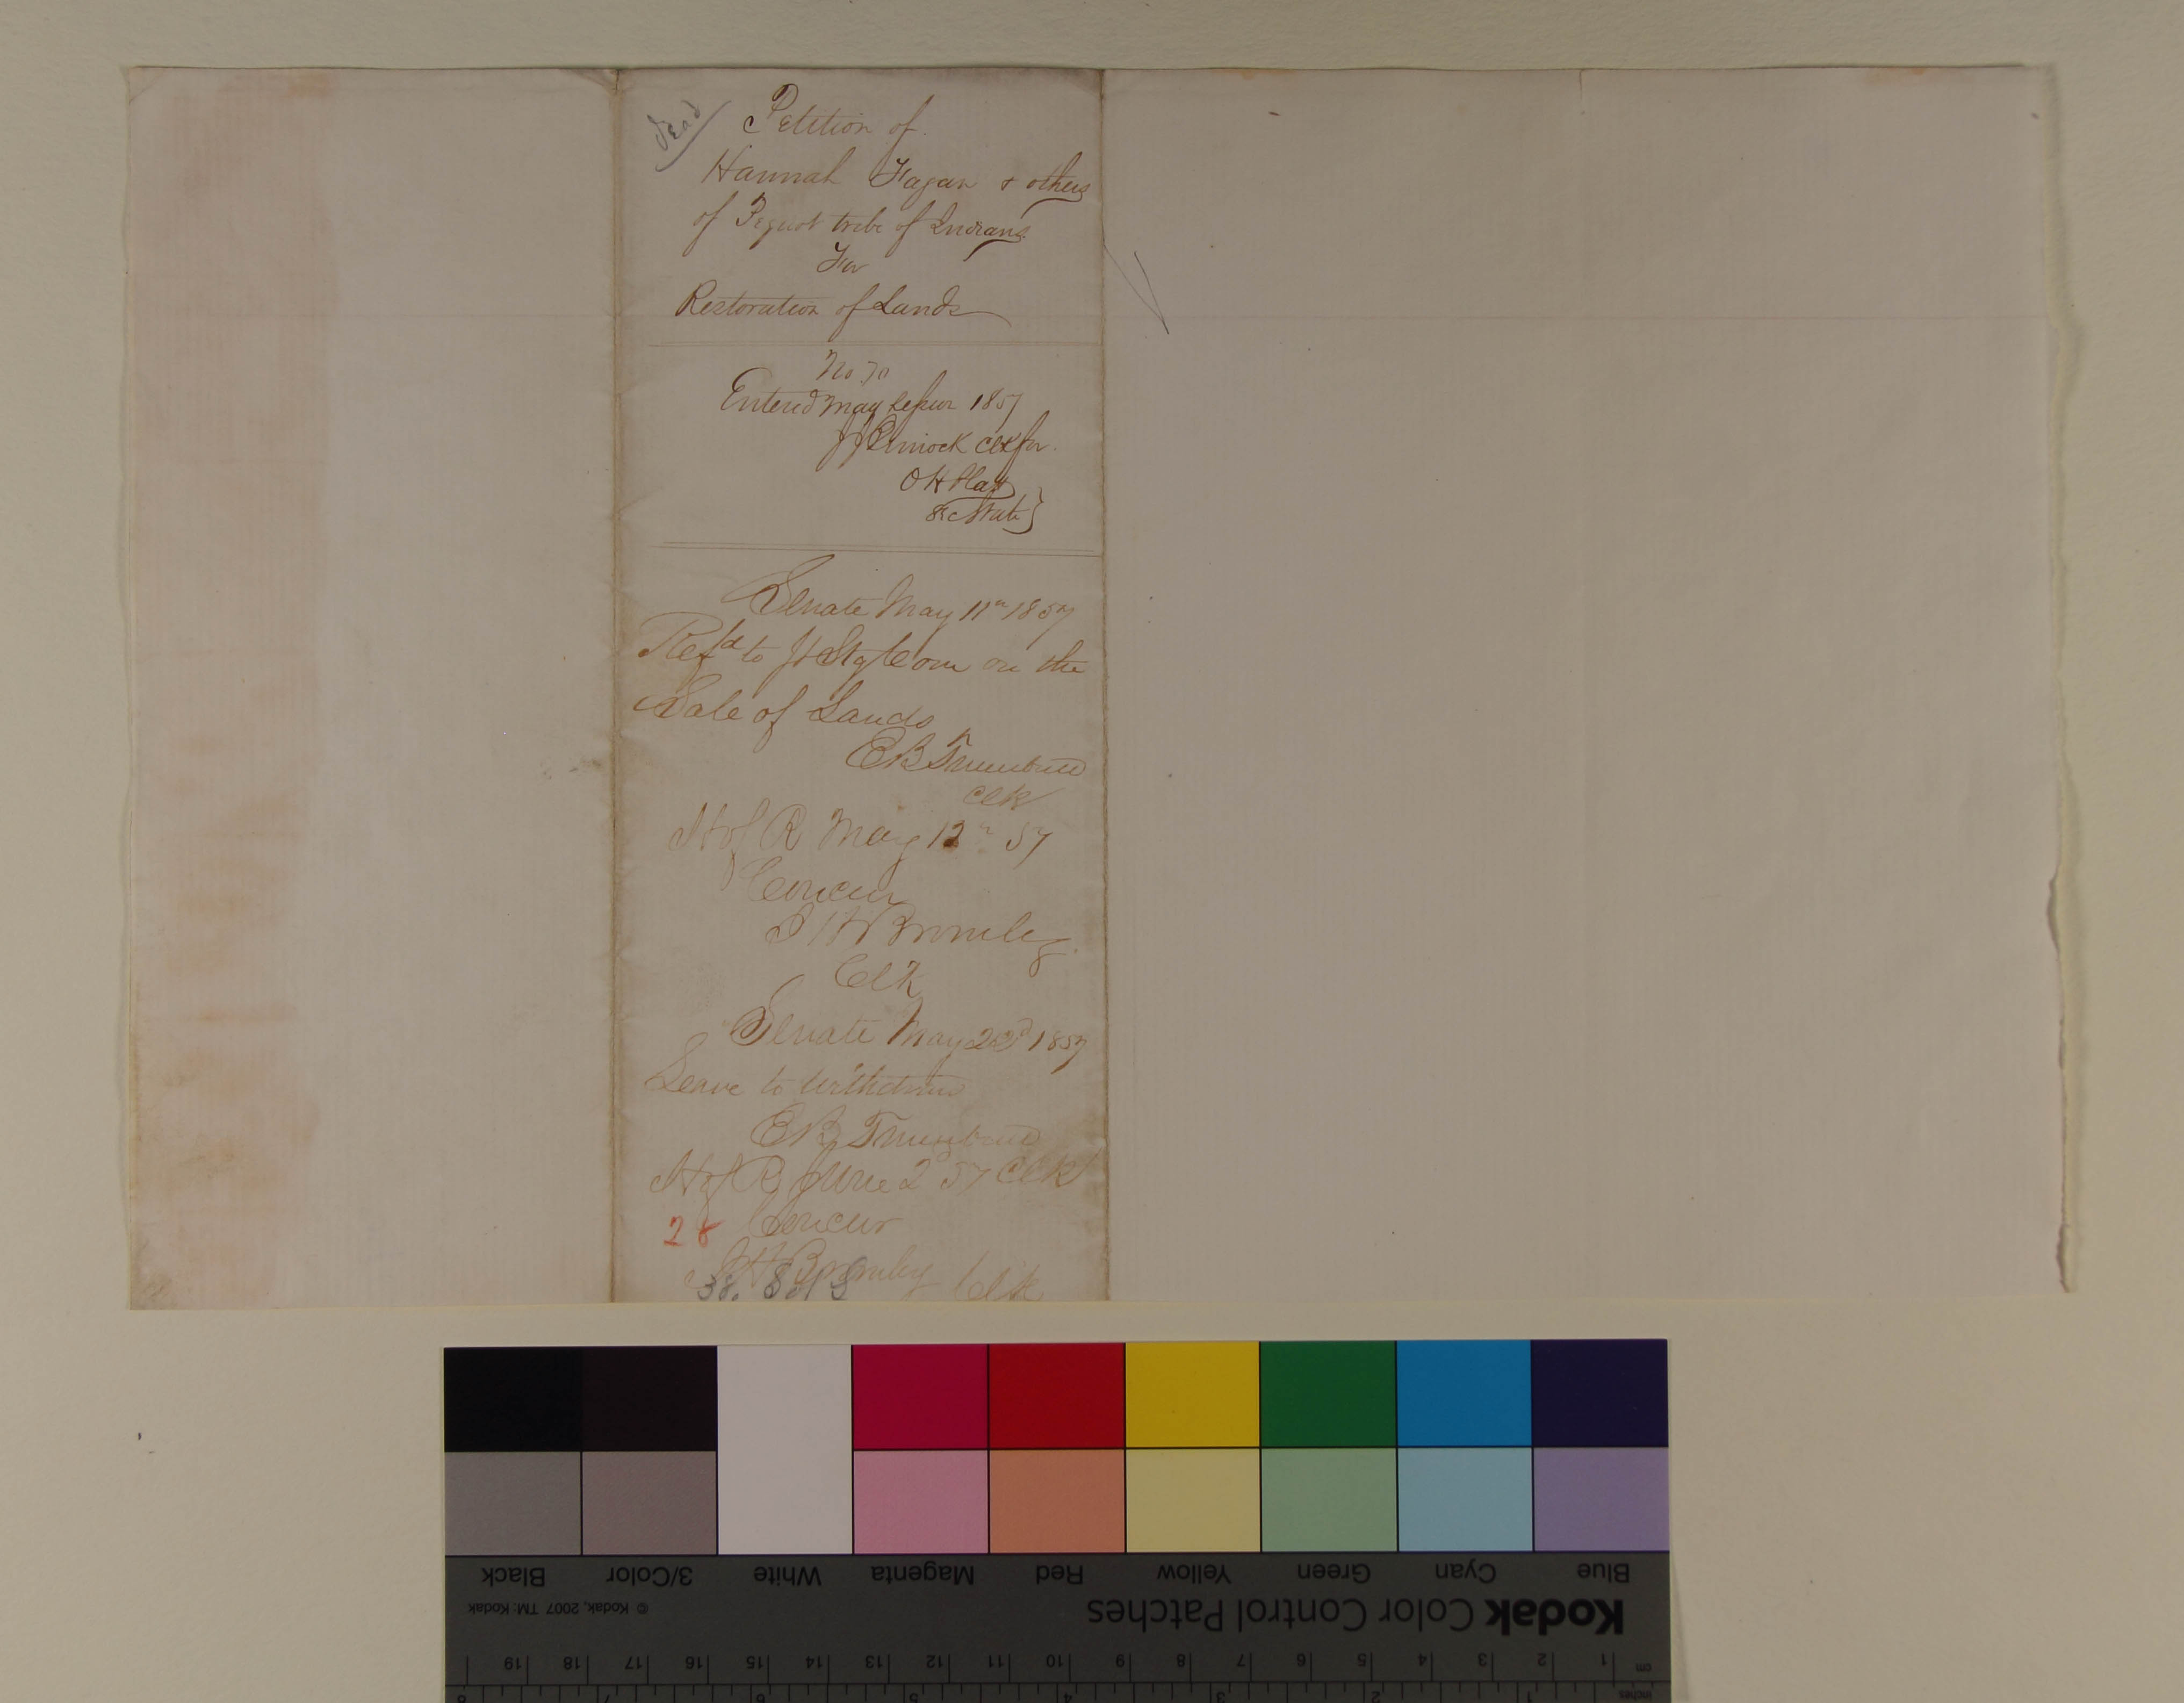 dead
Petition of
Hannah Fagan & others
of Pequot tribe of Indians
For
Restoration of Lands
No 70
Entered May 1857
Clk for
O H Platt
Sec State
Senate May 11th 1857
Refd to Jt St Com on the
Sale of Lands
E B Trumbull
Clk
H of R May 12th 57
Concur
I H Bromley
Clk
Senate May 23d 1857
Leave to withdraw
E B Trumbull
H of R June 2 57 Clk
28 Concur
I H Bromley Clk
Black 3/Color White Magenta Red Yellow Green Cyan Blue
© Kodak, 2007 TM: Kodak
Kodak Color Control Patches
19 18 17 16 15 14 13 12 11 10 9 8 7 6 5 4 3 2 1 cm
8 7 6 5 4 3 2 1 inches